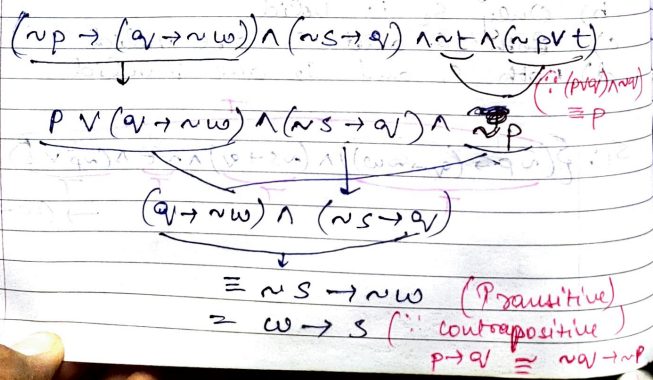 (~p → (q → ~w)) ∧ (~s → q) ∧ ~t ∧ (~p ∨ t)
(∵ (p∨q)∧~q)
≡ p
p ∨ (q → ~w) ∧ (~s → q) ∧ ~p
(q → ~w) ∧ (~s → q)
≡ ~s → ~w (Transitive)
= w → s (∵ contrapositive)
p → q ≅ ~q → ~p